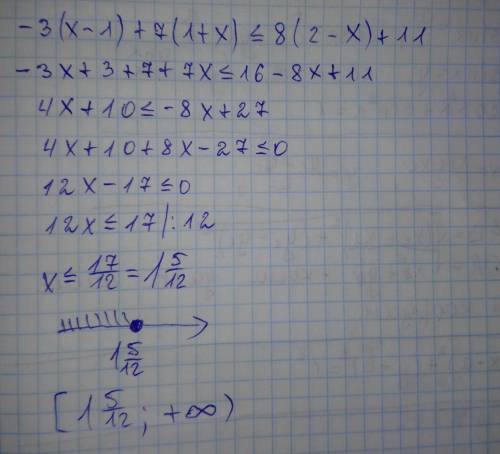 -3(x-1)+7(1+x)≤8(2-x)+11
-3x+3+7+7x≤16-8x+11
4x+10≤-8x+27
4x+10+8x-27≤0
12x-17≤0
12x≤17|:12
x≤17/12=1 5/12
1 5/12
[1 5/12; +∞)